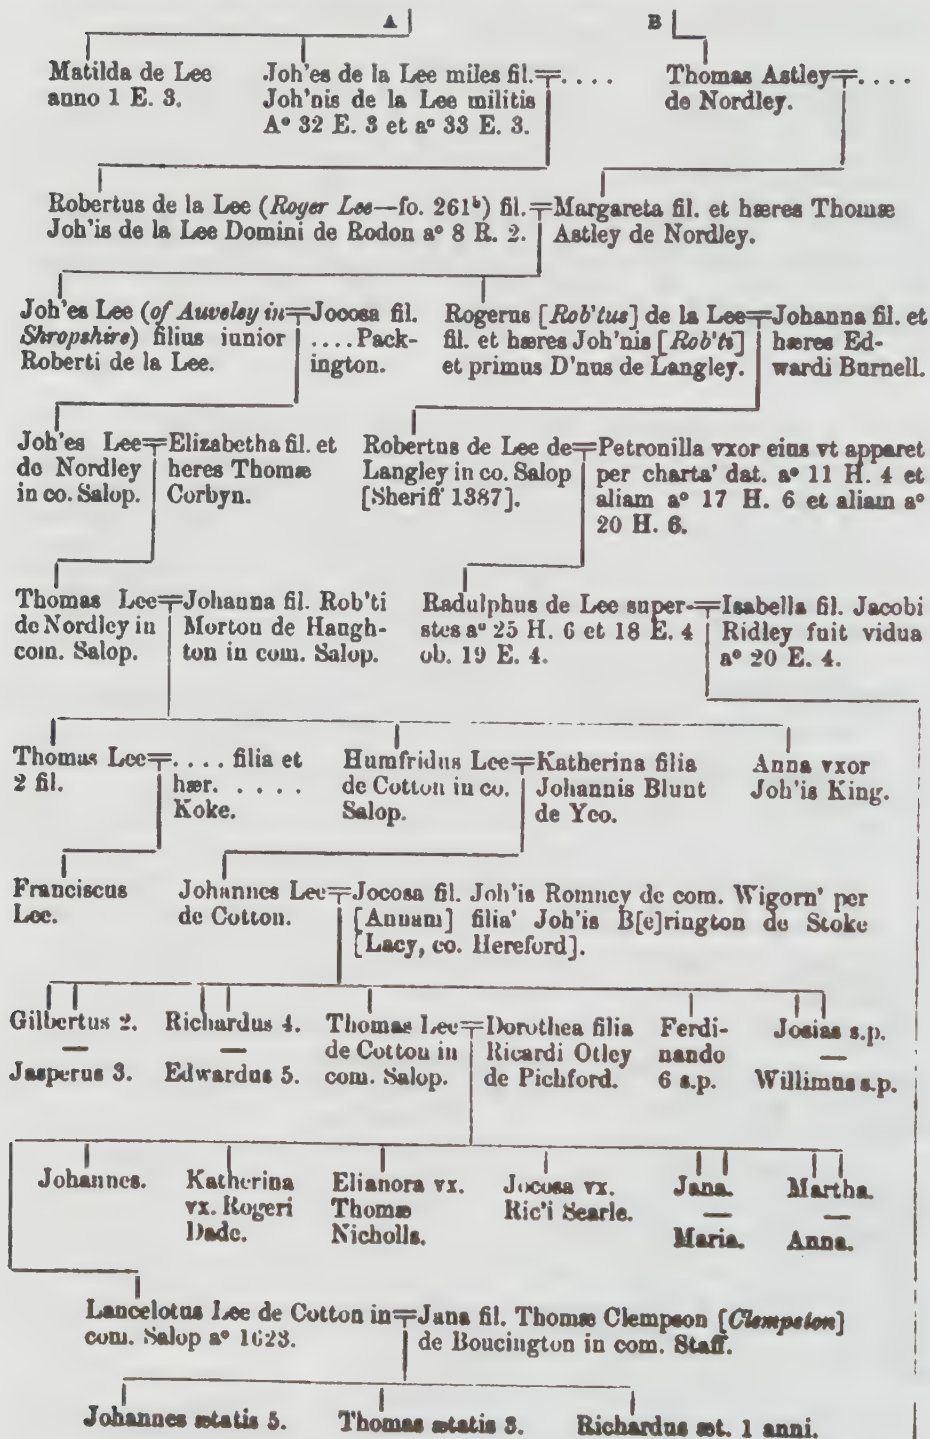 A B
Matilda de Lee
anno 1 E. 3.
Joh'es de la Lee miles fil.=. . . .
Joh'nis de la Lee militis
Aº 32 E. 3 et aº 33 E. 3.
Thomas Astley=. . . .
de Nordley.
Robertus de la Lee (Roger Lee—fo. 261ᵇ) fil.=
Joh'is de la Lee Domini de Rodon aº 8 R. 2.
Margareta fil. et hæres Thomæ
Astley de Nordley.
Joh'es Lee (of Auveley in=
Shropshire) filius iunior
Roberti de la Lee.
Jocosa fil.
. . . . Pack-
ington.
Rogerus [Rob'tus] de la Lee=
fil. et hæres Joh'nis [Rob'ti]
et primus D'nus de Langley.
Johanna fil. et
hæres Ed-
wardi Burnell.
Joh'es Lee=
de Nordley
in co. Salop.
Elizabetha fil. et
heres Thomæ
Corbyn.
Robertus de Lee de=
Langley in co. Salop
[Sheriff 1387].
Petronilla vxor eius vt apparet
per charta' dat. aº 11 H. 4 et
aliam aº 17 H. 6 et aliam aº
20 H. 6.
Thomas Lee=
de Nordley in
com. Salop.
Johanna fil. Rob'ti
Morton de Haugh-
ton in com. Salop.
Radulphus de Lee super-=
stes aº 25 H. 6 et 18 E. 4
ob. 19 E. 4.
Isabella fil. Jacobi
Ridley fuit vidua
aº 20 E. 4.
Thomas Lee=
2 fil.
. . . . filia et
hær. . . . .
Koke.
Humfridus Lee=
de Cotton in co.
Salop.
Katherina filia
Johannis Blunt
de Yco.
Anna vxor
Joh'is King.
Franciscus
Lee.
Johannes Lee=
de Cotton.
Jocosa fil. Joh'is Romney de com. Wigorn' per
[Annam] filia' Joh'is B[e]rington de Stoke
[Lacy, co. Hereford].
Gilbertus 2.
—
Jasperus 3.
Richardus 4.
—
Edwardus 5.
Thomas Lee=
de Cotton in
com. Salop.
Dorothea filia
Ricardi Otley
de Pichford.
Ferdi-
nando
6 s.p.
Josias s.p.
—
Willimus s.p.
Johannes.
Katherina
vx. Rogeri
Dade.
Elianora vx.
Thomæ
Nicholls.
Jocosa vx.
Ric'i Searle.
Jana.
—
Maria.
Martha.
—
Anna.
Lancelotus Lee de Cotton in=
com. Salop aº 1623.
Jana fil. Thomæ Clempson [Clempston]
de Boucington in com. Staff.
Johannes ætatis 5. Thomas ætatis 3. Richardus æt. 1 anni.